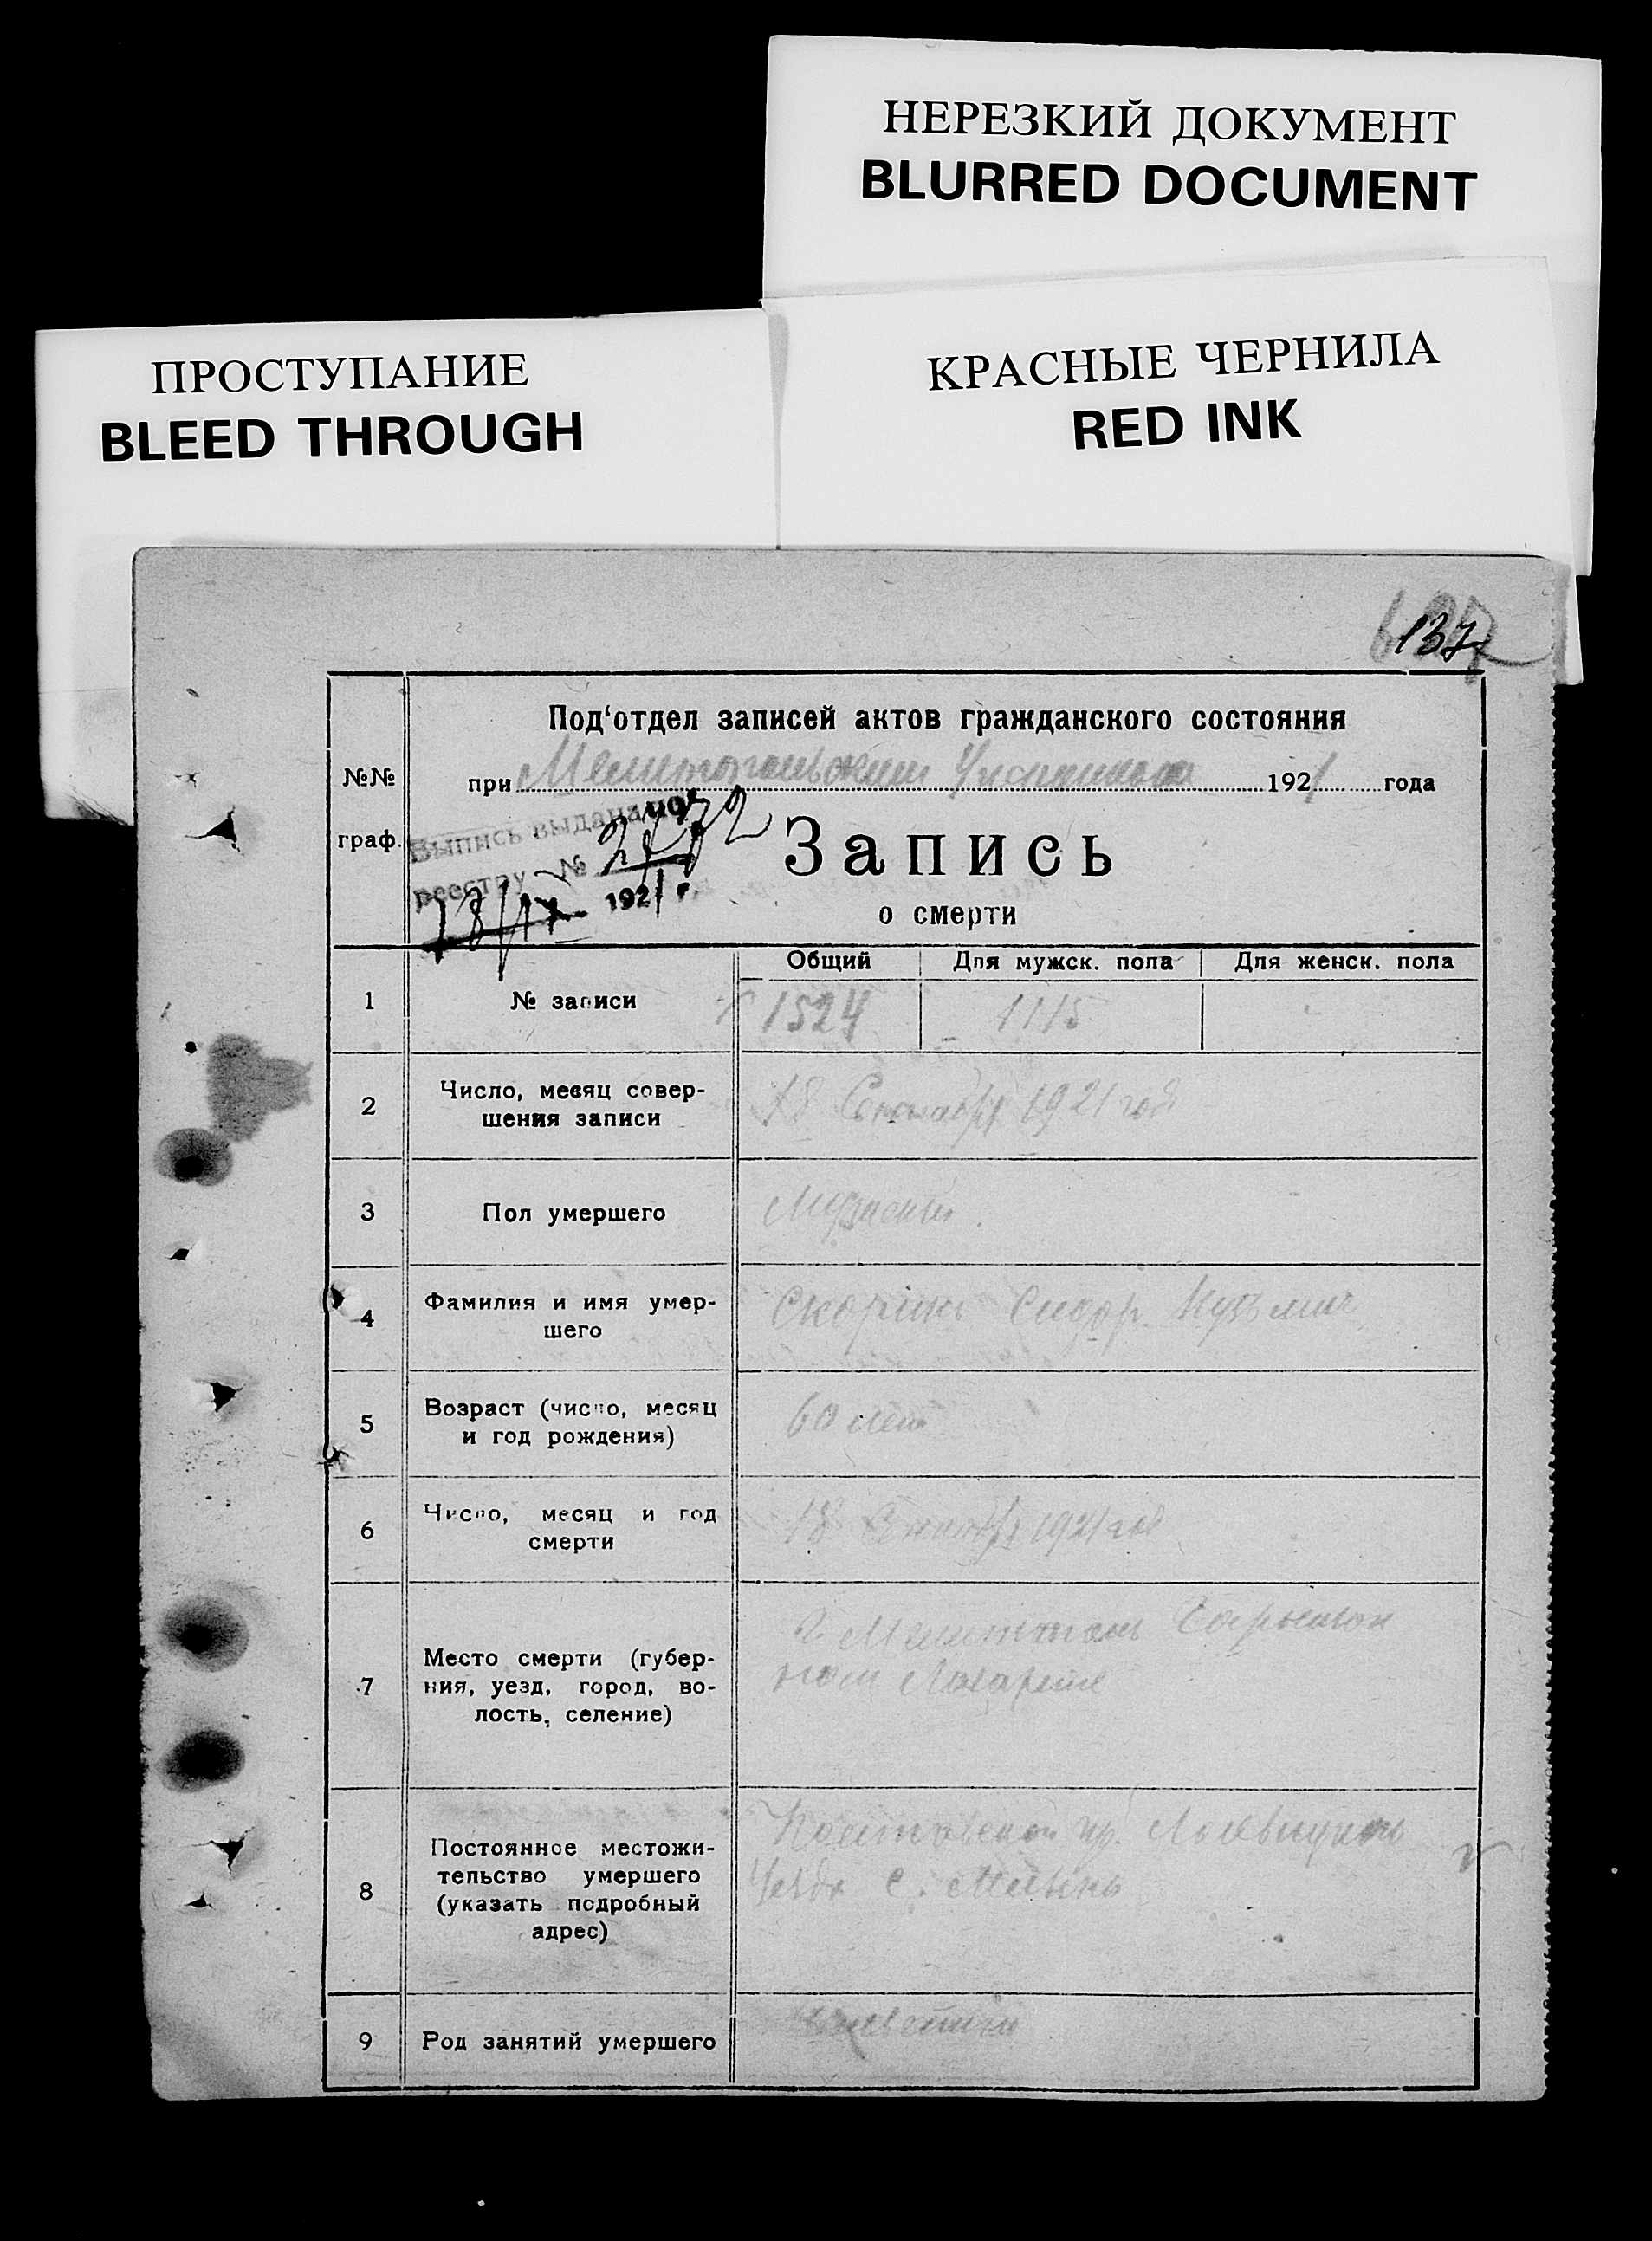 НЕРЕЗКИЙ ДОКУМЕНТ
BLURRED DOCUMENT
ПРОСТУПАНИЕ
BLEED THROUGH
КРАСНЫЕ ЧЕРНИЛА
RED INK
137
Под‘отдел записей актов гражданского состояния
№№
граф.
при Мелитопольским 1921 года
Выпись выдана по
реестру №
1921 г.
Запись
о смерти
Общий Для мужск. пола Для женск. пола
1 № записи 1524 1115
2 Число, месяц совер-
шения записи
18 Сентября 1921 год
3 Пол умершего Мужской
4 Фамилия и имя умер-
шего
Скорик Сидор Кузьмич
5 Возраст (число, месяц
и год рождения)
60 лет
6 Число, месяц и год
смерти
18 Сентября 1921 год
7 Место смерти (губер-
ния, уезд, город, во-
лость, селение)
г. Мелитополь
ном Лазарете
8 Постоянное местожи-
тельство умершего
(указать подробный
адрес)
Полтавской губ.
Уезда с.
9 Род занятий умершего